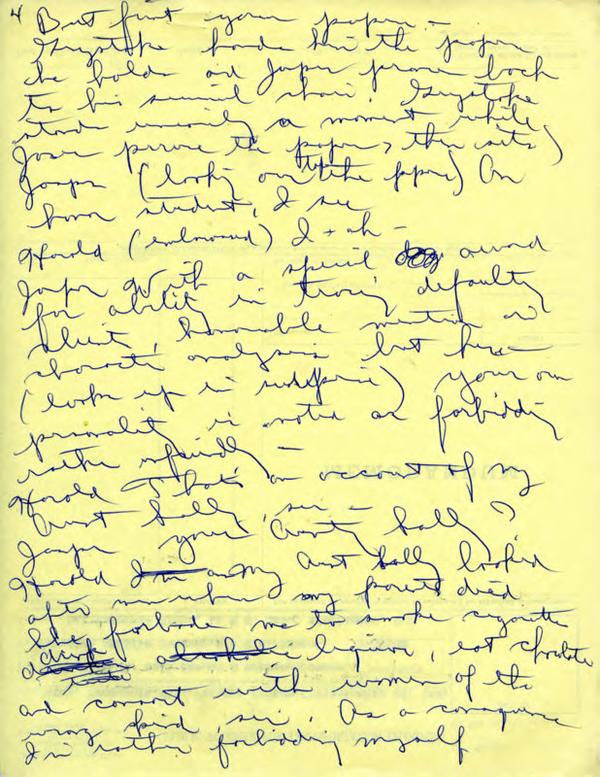 4 But first your papers –
Greystoke hands him the papers
he holds and Jasper moves back
to his swivel chair. Greystoke
stands uneasily a moment while
Jasper the papers, then sits)
Jasper (looking over the papers) An
honor student, I see
Harold (embarrassed) I – ah –
Jasper With a special award
for ability in tracing defaulty
client, honorable mention in
character analysis but here –
(looks up in surprise) your own
personality is noted as forbidding
rather unfriendly –
Harold That's on account of my
Aunt Sally, sir –
Jasper your Aunty Sally?
Harold My Aunt Sally looked
after me when my parents died
She forbade me to smoke cigarettes
drink liquor, eat chocolate
and consort with women of the
wrong kind, sir. As a consequence
I'm rather forbidding myself